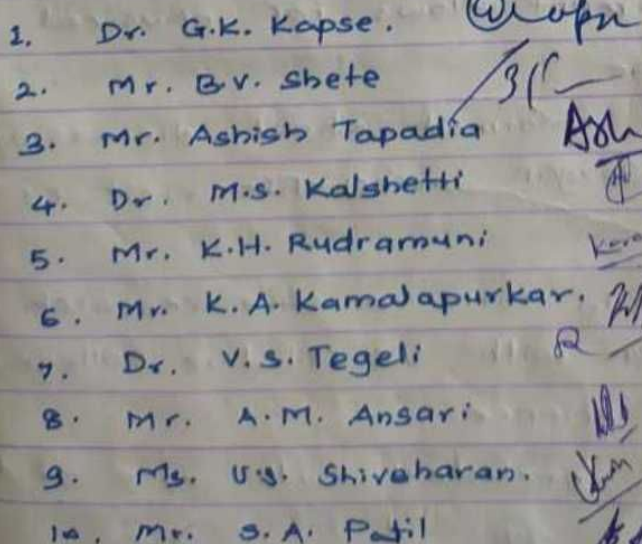 1. Dr. G.K. Kapse.
2. Mr. B.V. Shete
3. Mr. Ashish Tapadia
4. Dr. M.S. Kalshetti
5. Mr. K.H. Rudramuni
6. Mr. K.A. Kamalapurkar.
7. Dr. V.S. Tegeli
8. Mr. A.M. Ansari
9. Ms. V.S. Shivsharan.
10. Mr. S.A. Patil